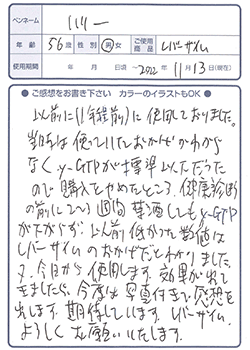 ペンネーム
川川一
年齢 56歳 性別 男・女 ご使用商品 レバーサイム
使用期間 年 月 日頃 ~ 2022年11月13日(現在)
● ご感想をお書き下さい カラーのイラストもOK ●
以前に(1年程前)に使用しておりました。
当時は使っていたおかげかわから
なくγ-GTPが標準以下だった
ので購入をやめたところ、健康診断
の前に2~3週間禁酒してもγ-GTP
が下がらず、以前低かった数値は
レバーサイムのおかげだとわかりました。
又、今日から使用します。効果が出て
きましたら、今度は写真付きで感想を
出します。期待しています。レバーサイム。
よろしくお願いいたします。